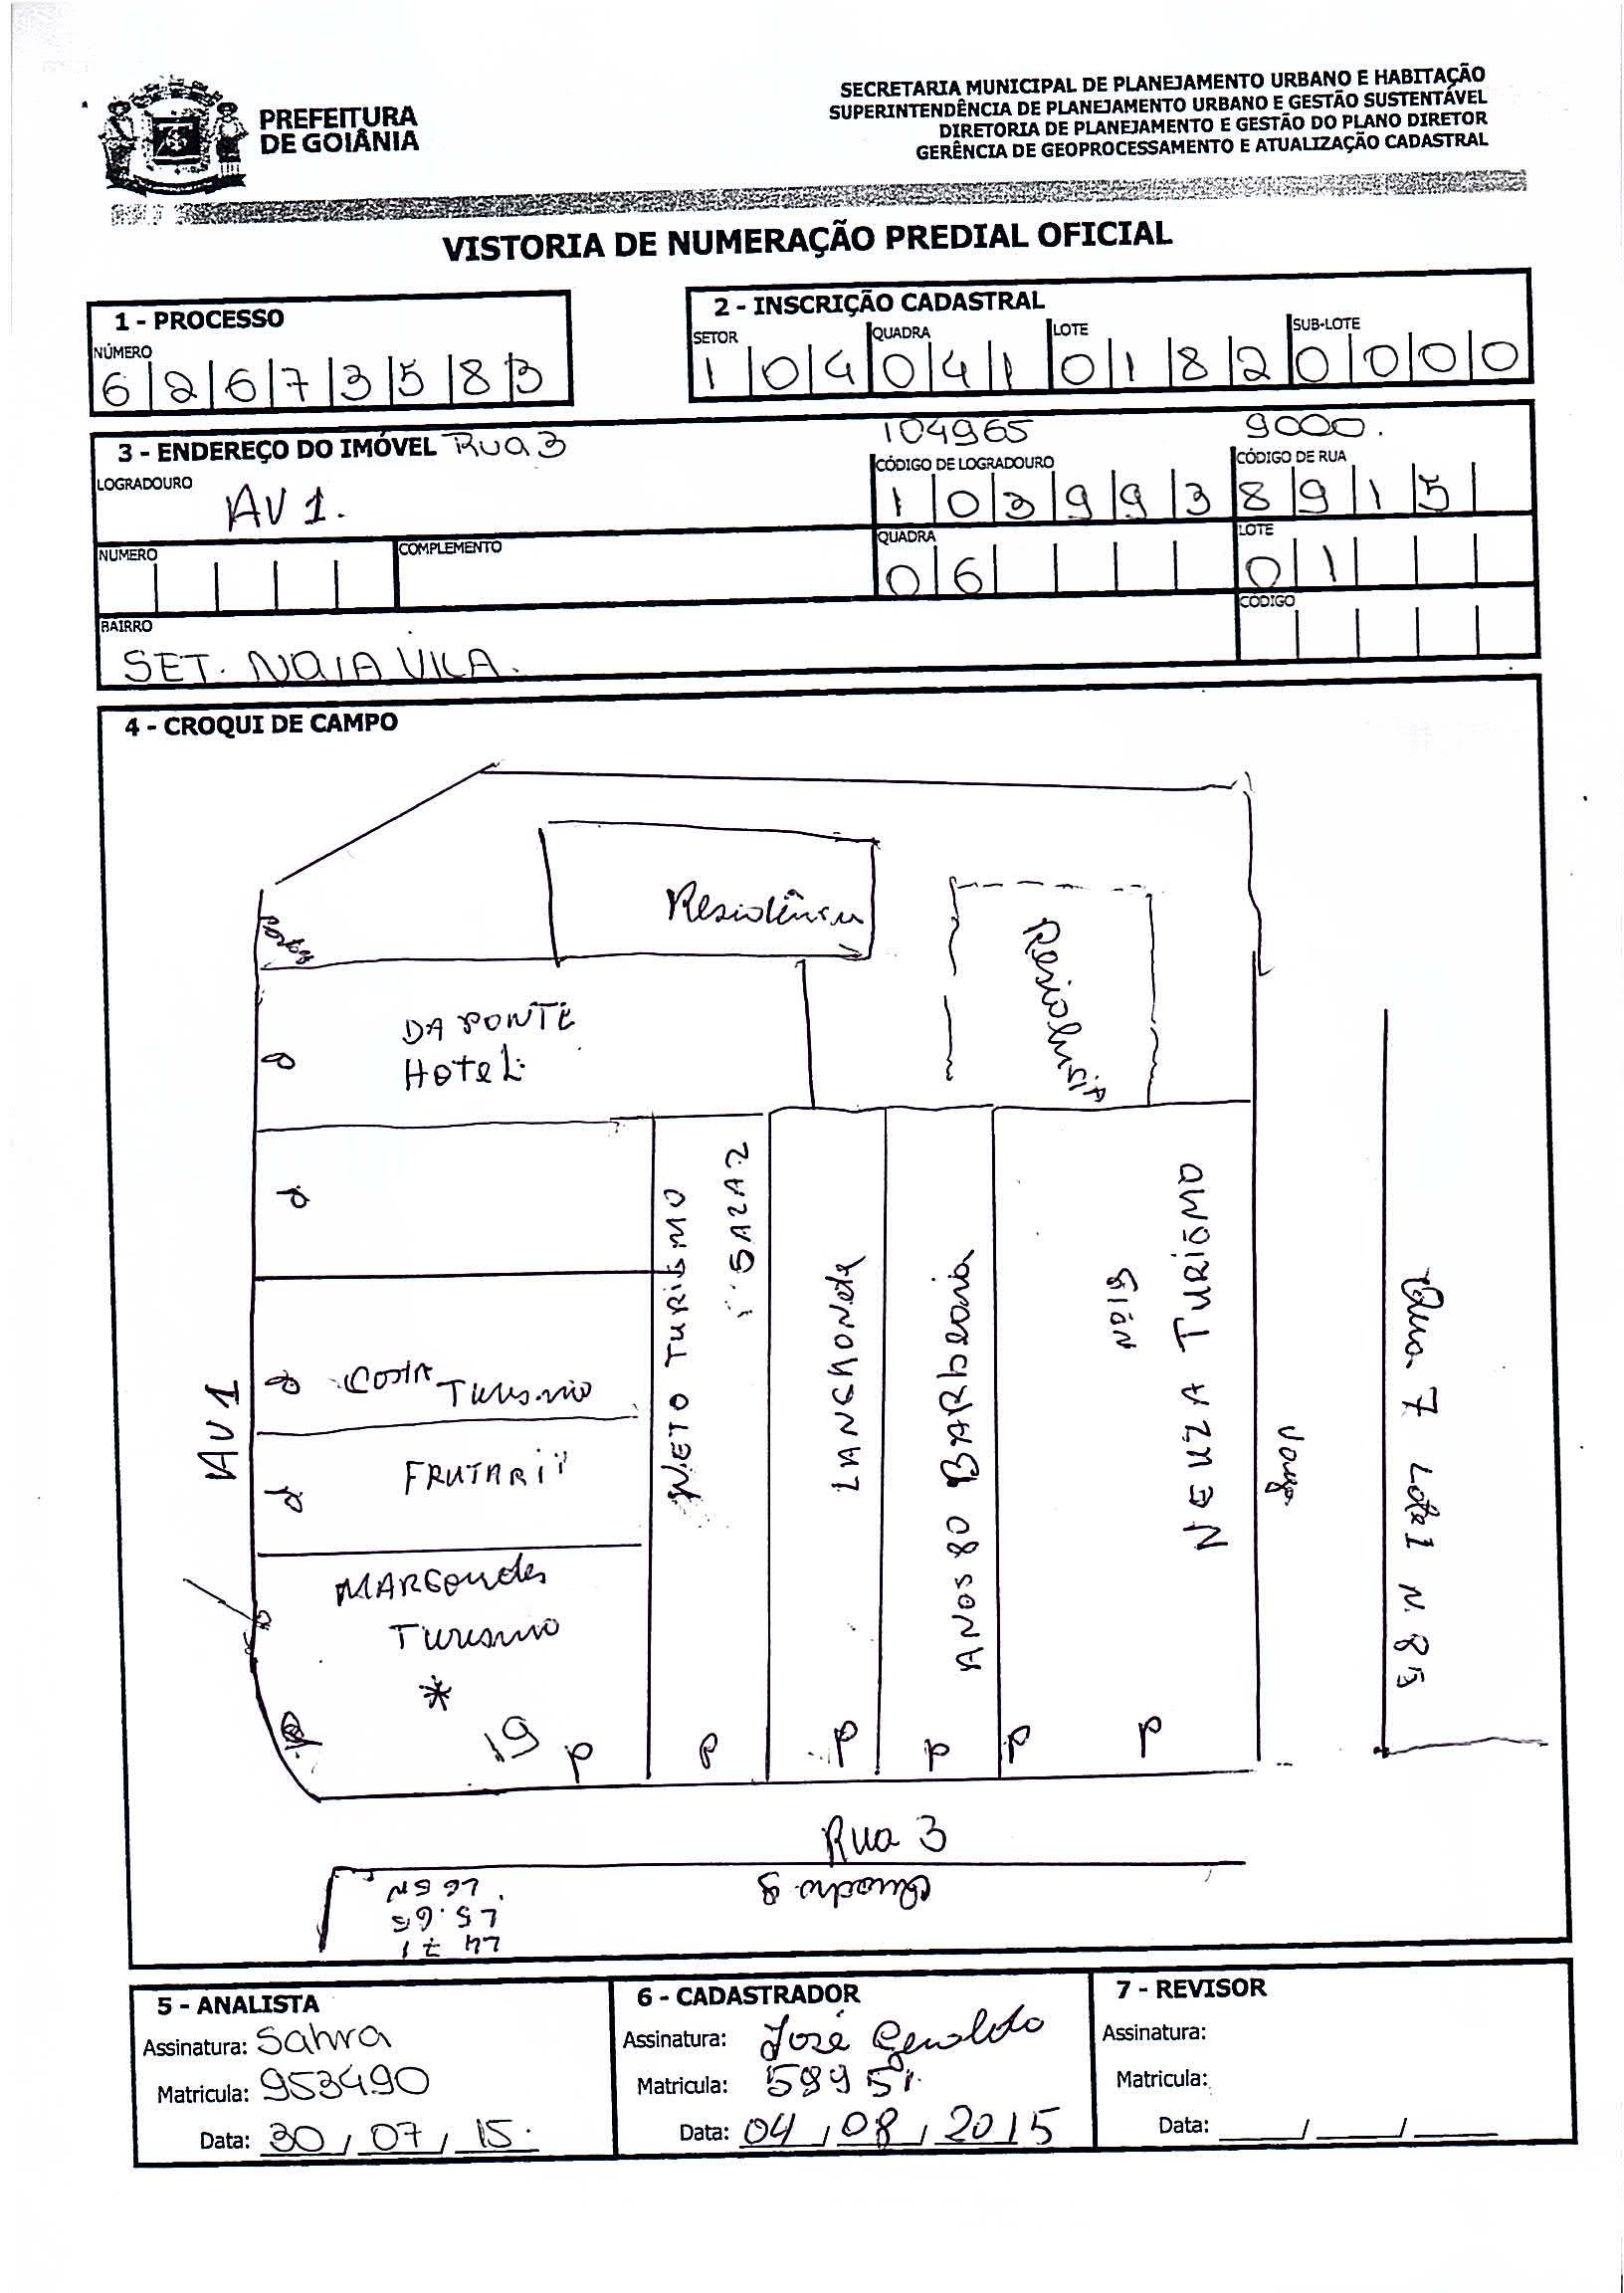 PREFEITURA
DE GOIÂNIA
SECRETARIA MUNICIPAL DE PLANEJAMENTO URBANO E HABITAÇÃO
SUPERINTENDÊNCIA DE PLANEJAMENTO URBANO E GESTÃO SUSTENTÁVEL
DIRETORIA DE PLANEJAMENTO E GESTÃO DO PLANO DIRETOR
GERÊNCIA DE GEOPROCESSAMENTO E ATUALIZAÇÃO CADASTRAL
VISTORIA DE NUMERAÇÃO PREDIAL OFICIAL
1 - PROCESSO
NÚMERO
6 2 6 7 3 5 8 3
2 - INSCRIÇÃO CADASTRAL
SETOR QUADRA LOTE SUB-LOTE
1 0 4 0 4 1 0 1 8 2 0 0 0 0
3 - ENDEREÇO DO IMÓVEL Rua 3
104965 9000.
LOGRADOURO CÓDIGO DE LOGRADOURO CÓDIGO DE RUA
AV 1. 1 0 3 9 9 3 8 9 1 5
NUMERO COMPLEMENTO QUADRA LOTE
0 6 0 1
BAIRRO CÓDIGO
SET. NOVA VILA.
4 - CROQUI DE CAMPO
Residência
Residência
DA PONTE
HoteL
NETO TURISMO
LANCHONete
ANOS 80 BARbearia
NEUZA TURISMO
Costa Turismo
FRUTARI
AV 1
Turismo
*
19
P P P P P P
Rua 7 Lote 1 N. 85
Rua 3
Quadra 8
5 - ANALISTA
Assinatura: Sahra
Matricula: 953490
Data: 30 / 07 / 15.
6 - CADASTRADOR
Assinatura: José Geraldo
Matricula:
Data: 04 / 08 / 2015
7 - REVISOR
Assinatura:
Matricula:
Data: ____/____/____